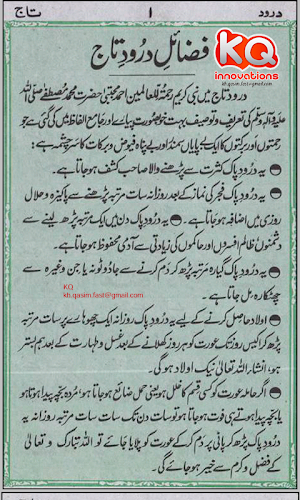 درود
۱
تاج
فضائل درود تاج
KQ
innovations
kh.qasim.fast@gmail.com
درود تاج میں نبی کریم رحمۃ للعالمین احمد مجتبیٰ حضرت محمد مصطفےٰ صلی اللہ
علیہ وآلہ وسلم کی تعریف و توصیف بہت خوبصورت پیرائے اور جامع الفاظ میں کی گئی ہے جو
رحمتوں اور برکتوں کا ایک بے پایاں سمندر اور بے پناہ فیوض و برکات کا سرچشمہ ہے:
یہ درود پاک کثرت سے پڑھنے والا صاحب کشف ہو جاتا ہے۔
یہ درود پاک فجر کی نماز کے بعد روزانہ سات مرتبہ پڑھنے سے پاکیزہ و حلال
روزی میں اضافہ ہو جاتا ہے۔ یہ درود پاک دن میں ایک مرتبہ پڑھ لینے سے
دشمنوں ظالم افسروں اور حاکموں کی زیادتی سے آدمی محفوظ ہو جاتا ہے۔
یہ درود پاک گیارہ مرتبہ پڑھ کر دم کرنے سے جادو ٹونہ یا جن وغیرہ سے
چھٹکارہ مل جاتا ہے۔
KQ
kh.qasim.fast@gmail.com
اولاد حاصل کرنے کے لیے یہ درود پاک روزانہ ایک چھوہارے پر سات مرتبہ
پڑھ کر اکیس روز تک عورت کو ہر روز کھلانے کے بعد غسل و طہارت کے بعد ہم بستر
ہو، انشاء اللہ تعالیٰ نیک اولاد ہو گی۔
اگر حاملہ عورت کو کسی قسم کا خلل ہو یعنی حمل ضائع ہو جاتا ہو، مردہ بچہ پیدا ہوتا ہو
یا بچہ پیدا ہوتے ہی فوت ہو جاتا ہو تو سات دن تک سات سات مرتبہ روزانہ یہ
درود پاک پڑھ کر پانی پر دم کر کے عورت کو پلایا جائے تو اللہ تبارک و تعالیٰ
کے فضل و کرم سے خیر ہو جائے گی۔